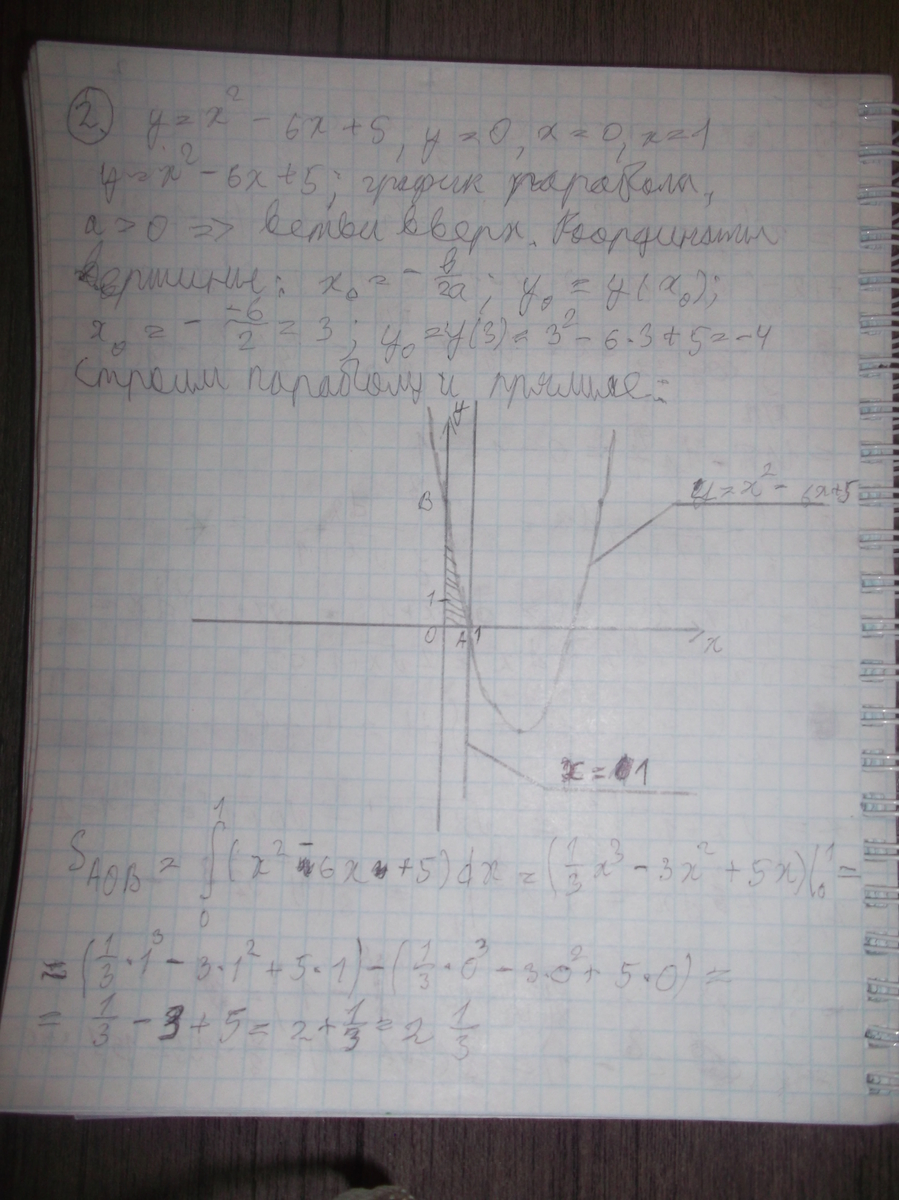 2. y = x² - 6x + 5, y = 0, x = 0, x = 1
y = x² - 6x + 5; график парабола,
a > 0 => ветви вверх. Координаты
вершины: x₀ = - в/2a; y₀ = y(x₀);
x₀ = - -6/2 = 3; y₀ = y(3) = 3² - 6·3 + 5 = -4
Строим параболу и прямые:
y
B
y = x² - 6x + 5
1
0 A 1
x
x = 1
S_AOB = ∫₀¹ (x² - 6x + 5) dx = (1/3 x³ - 3x² + 5x)|₀¹ =
= (1/3 · 1³ - 3·1² + 5·1) - (1/3 · 0³ - 3·0² + 5·0) =
= 1/3 - 3 + 5 = 2 + 1/3 = 2 1/3